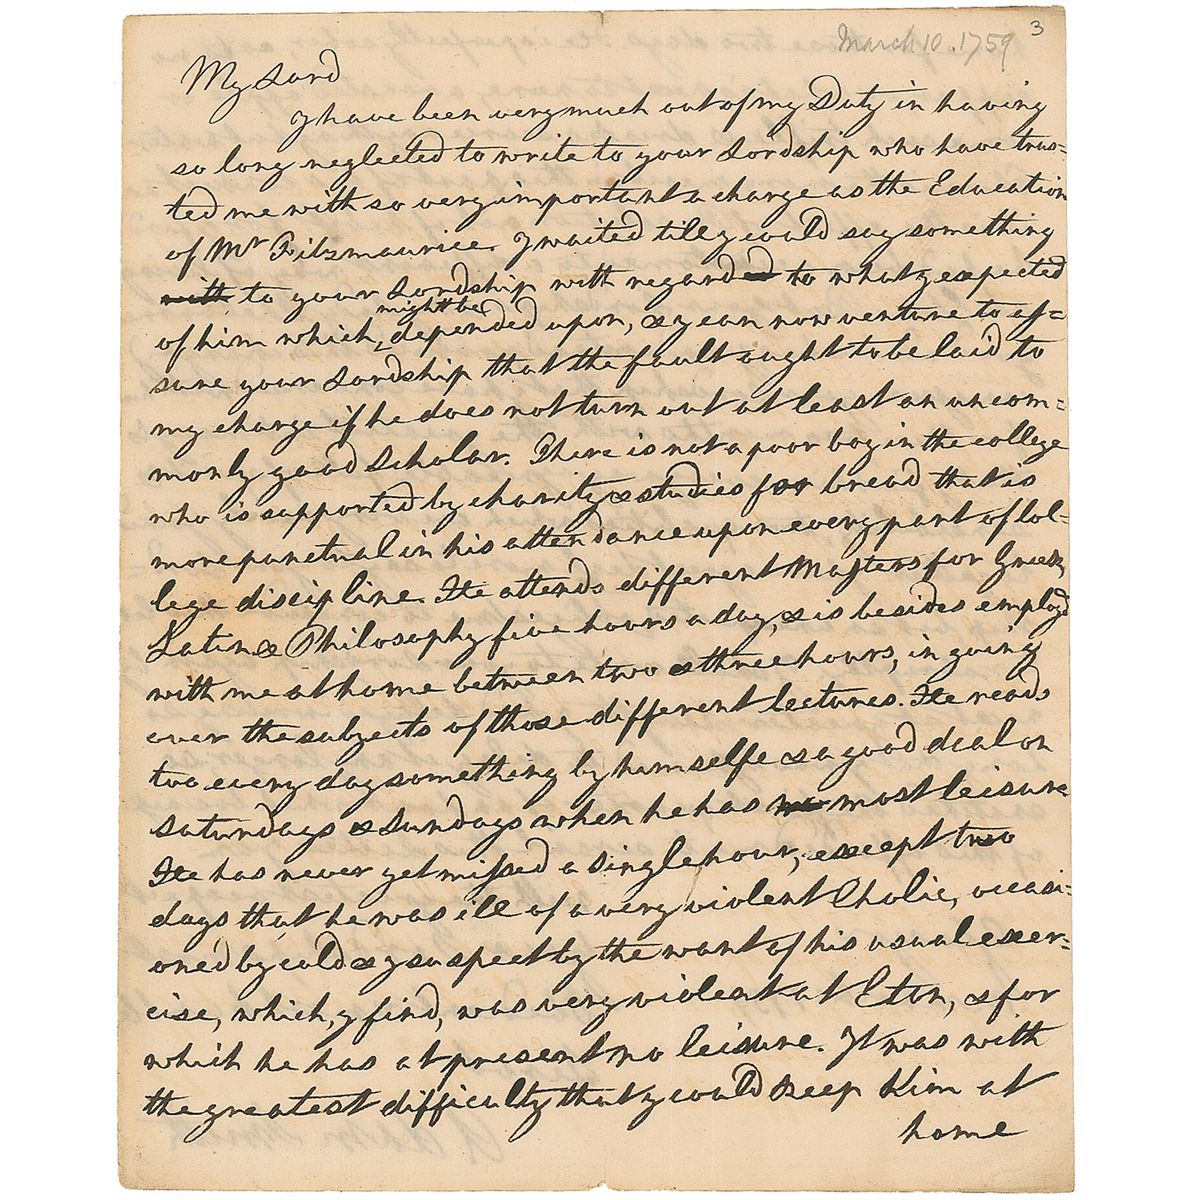 3
March 10. 1759
My Lord
I have been very much out of my Duty in having
so long neglected to write to your Lordship who have trus=
ted me with so very important a charge as the Education
of Mr Fitzmaurice. I waited till I could say something
with to your Lordship with regard to what I expected
might be
of him which depended upon, & I can now venture to as=
sure your Lordship that the fault ought to be laid to
my charge if he does not turn out at least an uncom=
monly good Scholar. There is not a poor boy in the college
who is supported by charity & studies for bread that is
more punctual in his attendance upon every part of Col=
lege discipline. He attends different Masters for Greek,
Latin & Philosophy five hours a day, & is besides employd
with me at home between two & three hours, in going
over the subjects of those different lectures. He reads
too every day something by himselfe & a good deal on
saturdays & sundays when he has most leisure
He has never yet missed a single hour, except two
days that he was ill of a very violent Cholic, occasi=
oned by cold & I suspect by the want of his usual exer=
cise, which, I find, was very violent at Eton, & for
which he has at present no leisure. It was with
the greatest difficulty that I could keep him at
home